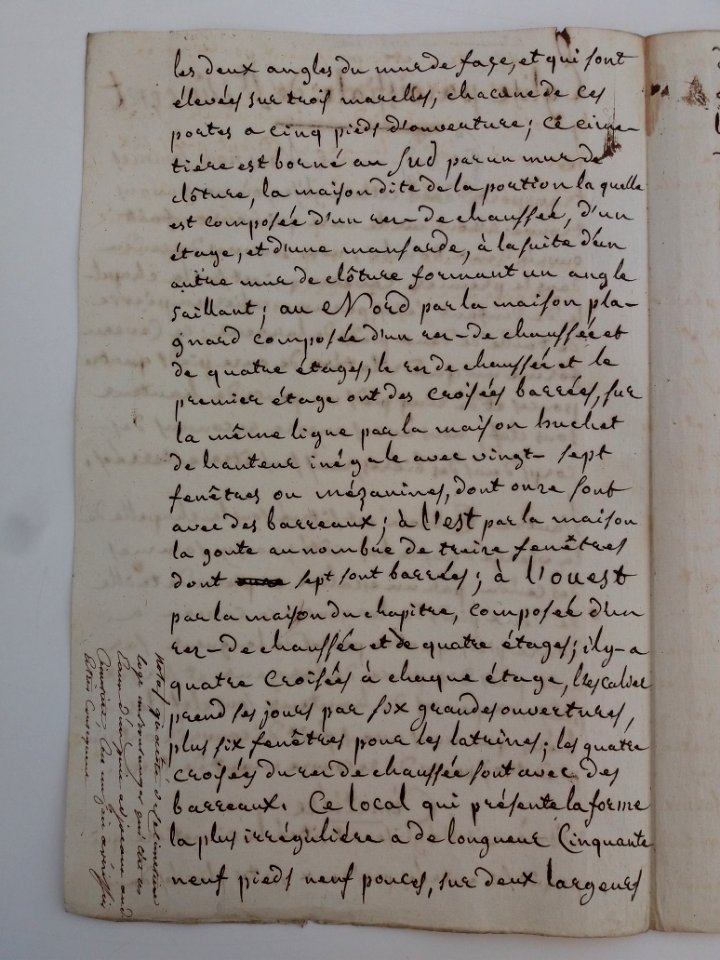 les deux angles du mur de façe, et qui sont
élevées sur trois marelles, chacune de ces
portes a cinq pieds d'ouverture; ce cime-
tiére est borné au Sud par un mur de
clôture, la maison dite de la portion la quelle
est composée d'un rez-de chaussée, d'un
étage, et d'une mansarde, à la suite d'un
autre mur de clôture formant un angle
saillant; au Nord par la maison pla-
gnard composée d'un rez-de chaussée et
de quatre étages, le rez de chaussée et le
premier étage ont des croisées barrées, sur
la même ligne par la maison huchet
de hauteur inégale avec vingt-sept
fenêtres ou mézanines, dont onze sont
avec des barreaux; à l'est par la maison
la goute au nombre de treize fenêtres
dont sept sont barrées; à l'ouest
par la maison du chapitre, composée d'un
rez-de chaussée et de quatre étages; il y-a
quatre croisées à chaque étage, l'escalier
prend ses jours par six grandes ouvertures,
plus six fenêtres pour les latrines; les quatre
croisées du rez de chaussée sont avec des
barreaux. Ce local qui présente la forme
la plus irréguliére a de longueur Cinquante
neuf pieds neuf pouces, sur deux largeurs